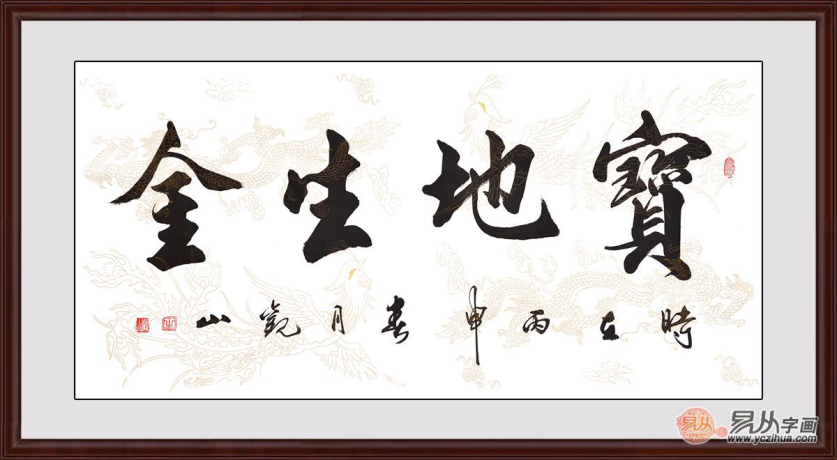 寶地生金
時在丙申春月觀山
易从
易从字画
www.yczihua.com